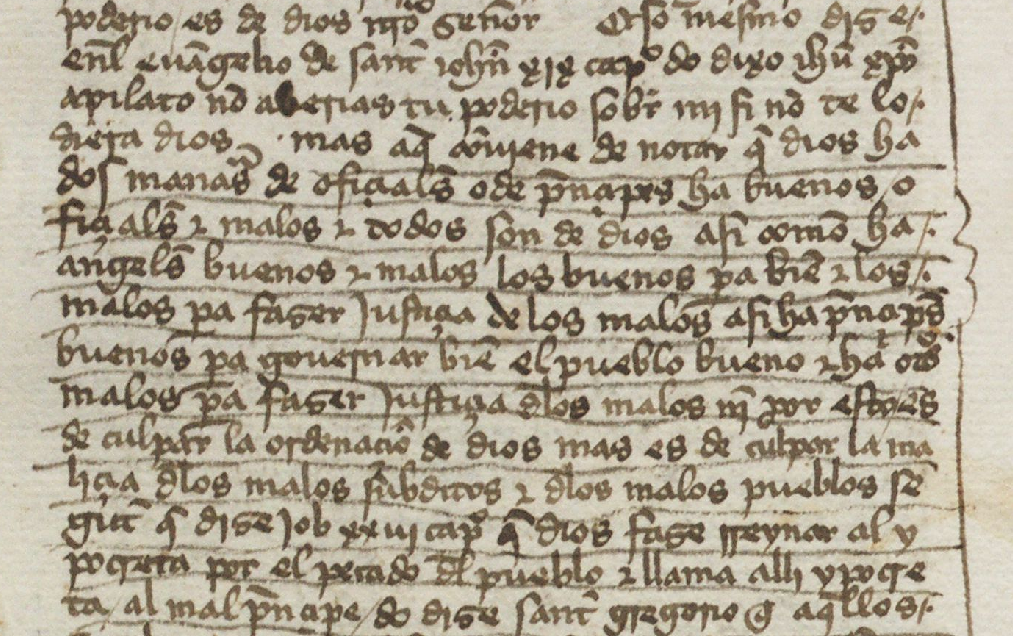 poderio es de dios nr̃o señor Eso mesmo dize
enl euãgelio de sant iohñ xix capº do dixo ihũ xp̃o
apilato nõ aberias tu poderio sobr̃ mi si nõ te lo
diera dios . mas aq̃ cõuiene de notar q̃ dios ha
dos manas̃ de oficials̃ o de p̃ncipes ha buenos o
ficials̃ ⁊ malos ⁊ todos son de dios asi como ha
angels̃ buenos ⁊ malos los buenos pa biẽ ⁊ los
malos pa fazer Justiçia de los malos asi ha p̃ncipes
buenos pa gouernar biẽ el pueblo bueno ⁊ ha otõs
malos pa fazer Justiçia dlos malos nĩ por esto es
de culpar la ordenaciõ de dios mas es de culpar la ma
licia dlos malos subditos ⁊ dlos malos pueblos se
gũt q̃ dize Job xxxvi capº q̃ dios faze rreynar al y
pocreta por el pecado dl pueblo ⁊ llama alli ypocre
ta / al mal p̃ncipe / do dize sant gregorio q̃ aq̃llos